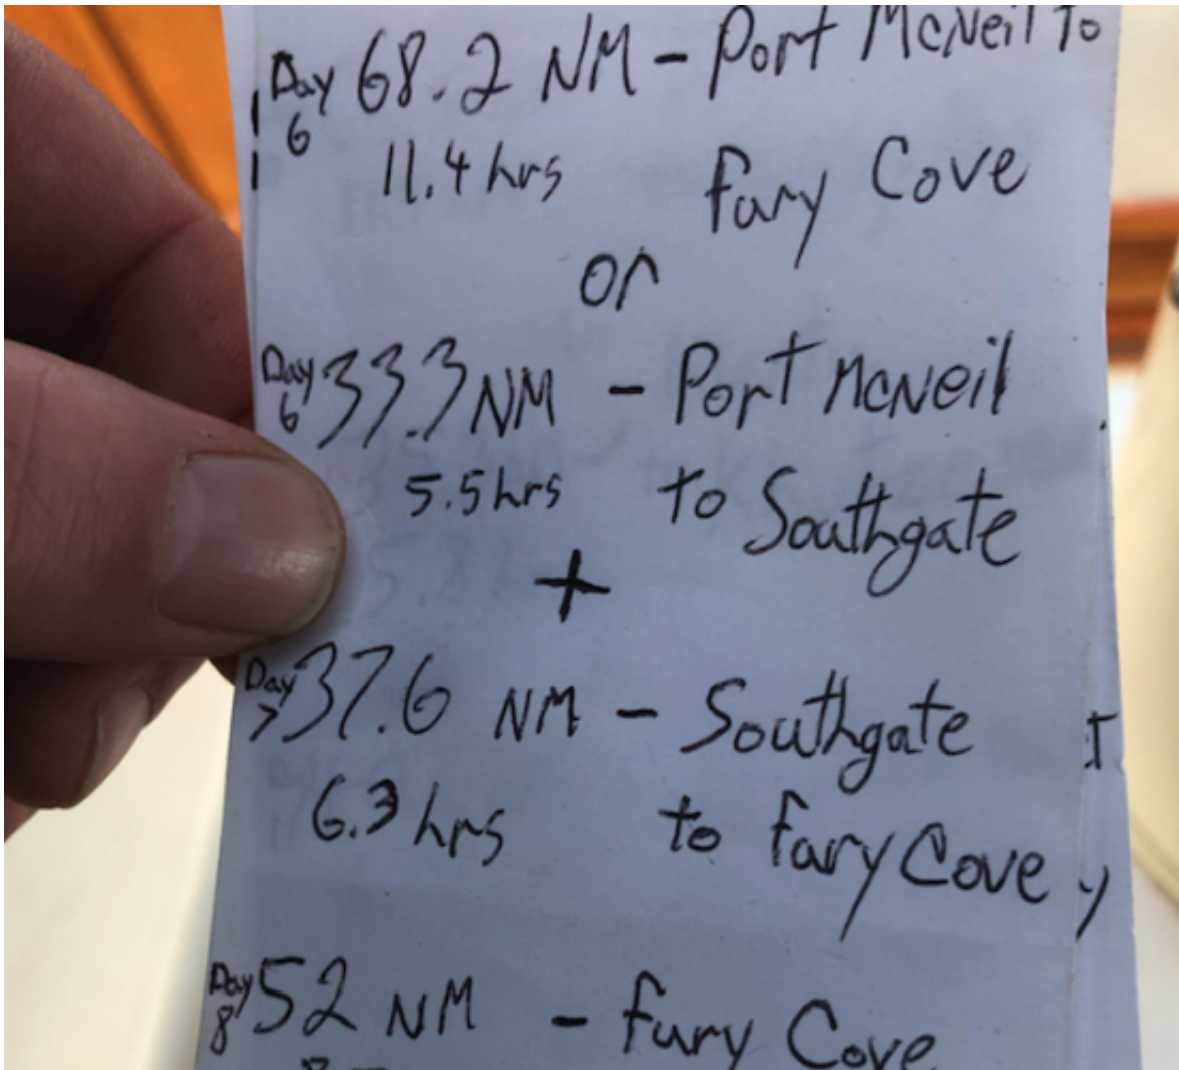 Day 6 68.2 NM - Port McNeil to
11.4 hrs Fury Cove
or
Day 6 33.3 NM - Port McNeil
5.5 hrs to Southgate
+
Day 7 37.6 NM - Southgate
6.3 hrs to Fury Cove
Day 8 52 NM - Fury Cove